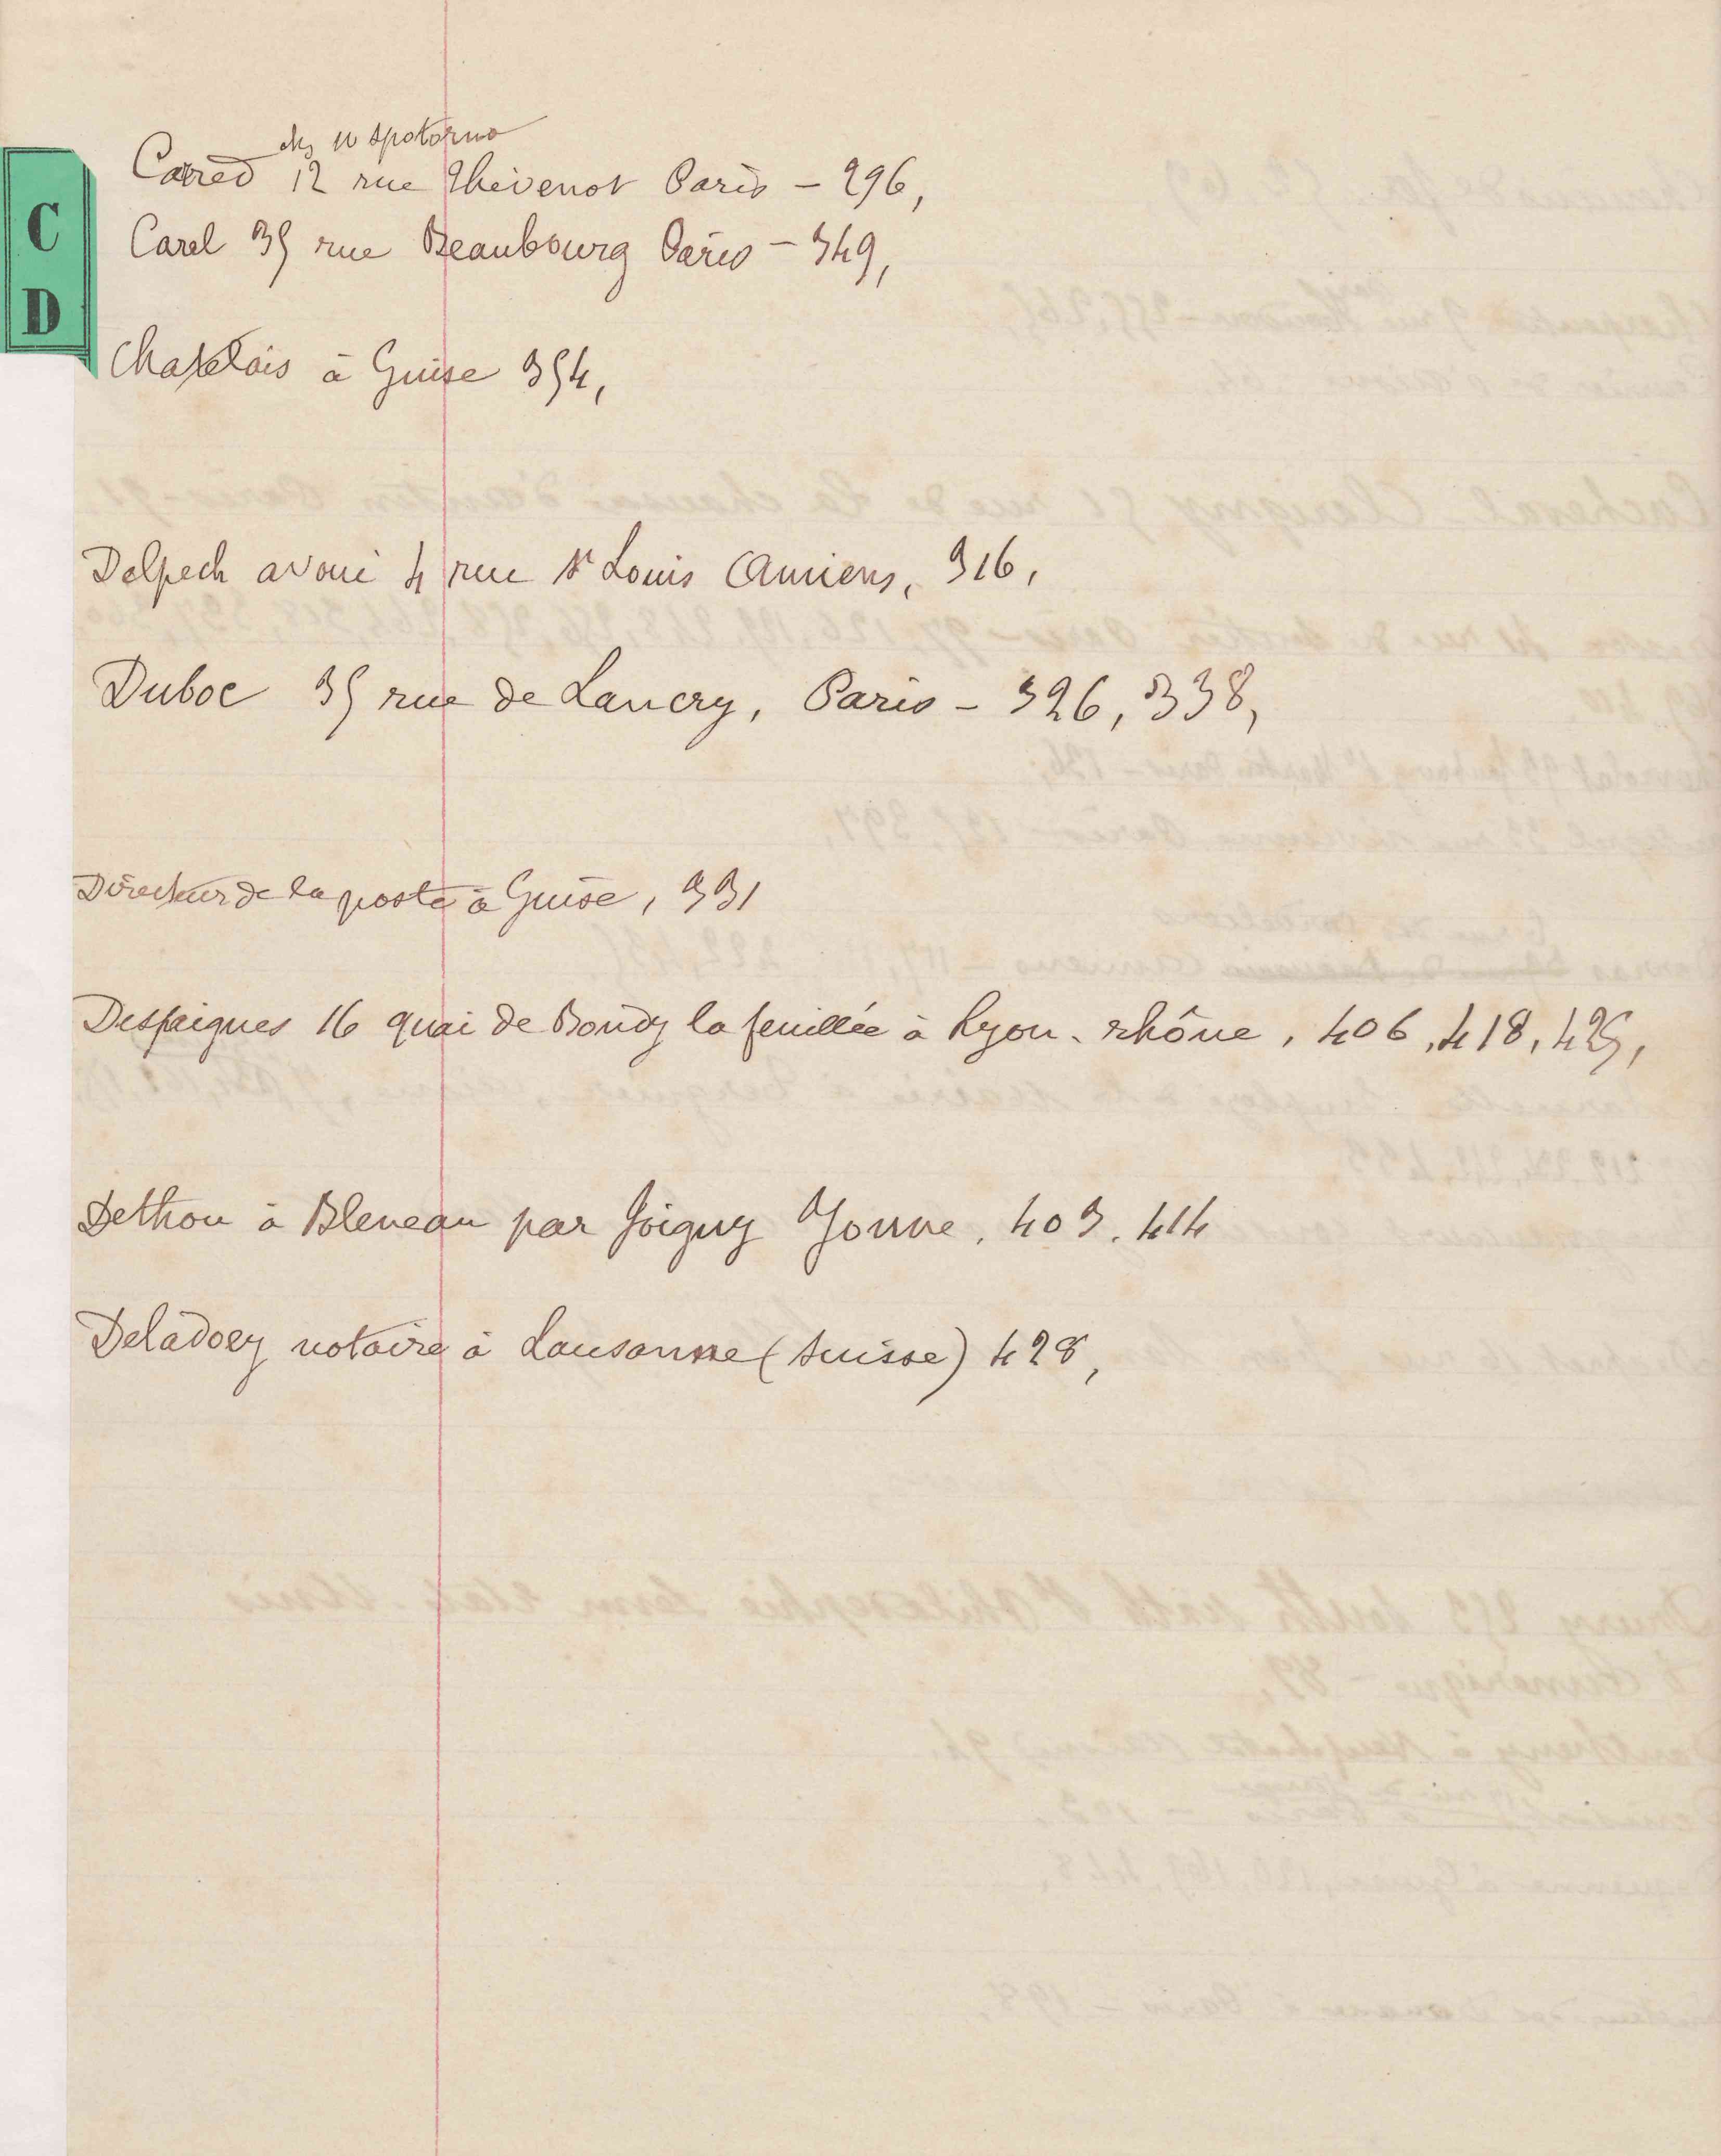 C
D
chez M Spotorno
Cared 12 rue Thévenot Paris – 296,
Carel 35 rue Beaubourg Paris – 349,
Chatelais à Guise 354,
Delpech avoué 4 rue St Louis Amiens, 316,
Duboc 35 rue de Lancry, Paris – 326, 338,
Directeur de la poste à Guise, 331
Despaignes 16 quai de Bondy la feuillée à Lyon. rhône, 406, 418, 425,
Dethou à Bleneau par Joigny Yonne, 403, 414
Deladoey notaire à Lausanne (Suisse) 428,